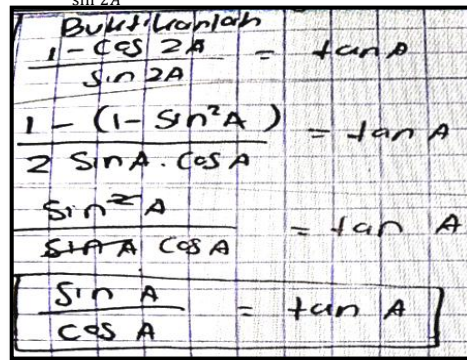 sin 2A
Buktikanlah
1 - cos 2A / sin 2A = tan A
1 - (1 - sin²A) / 2 sin A . cos A = tan A
sin²A / sin A cos A = tan A
sin A / cos A = tan A